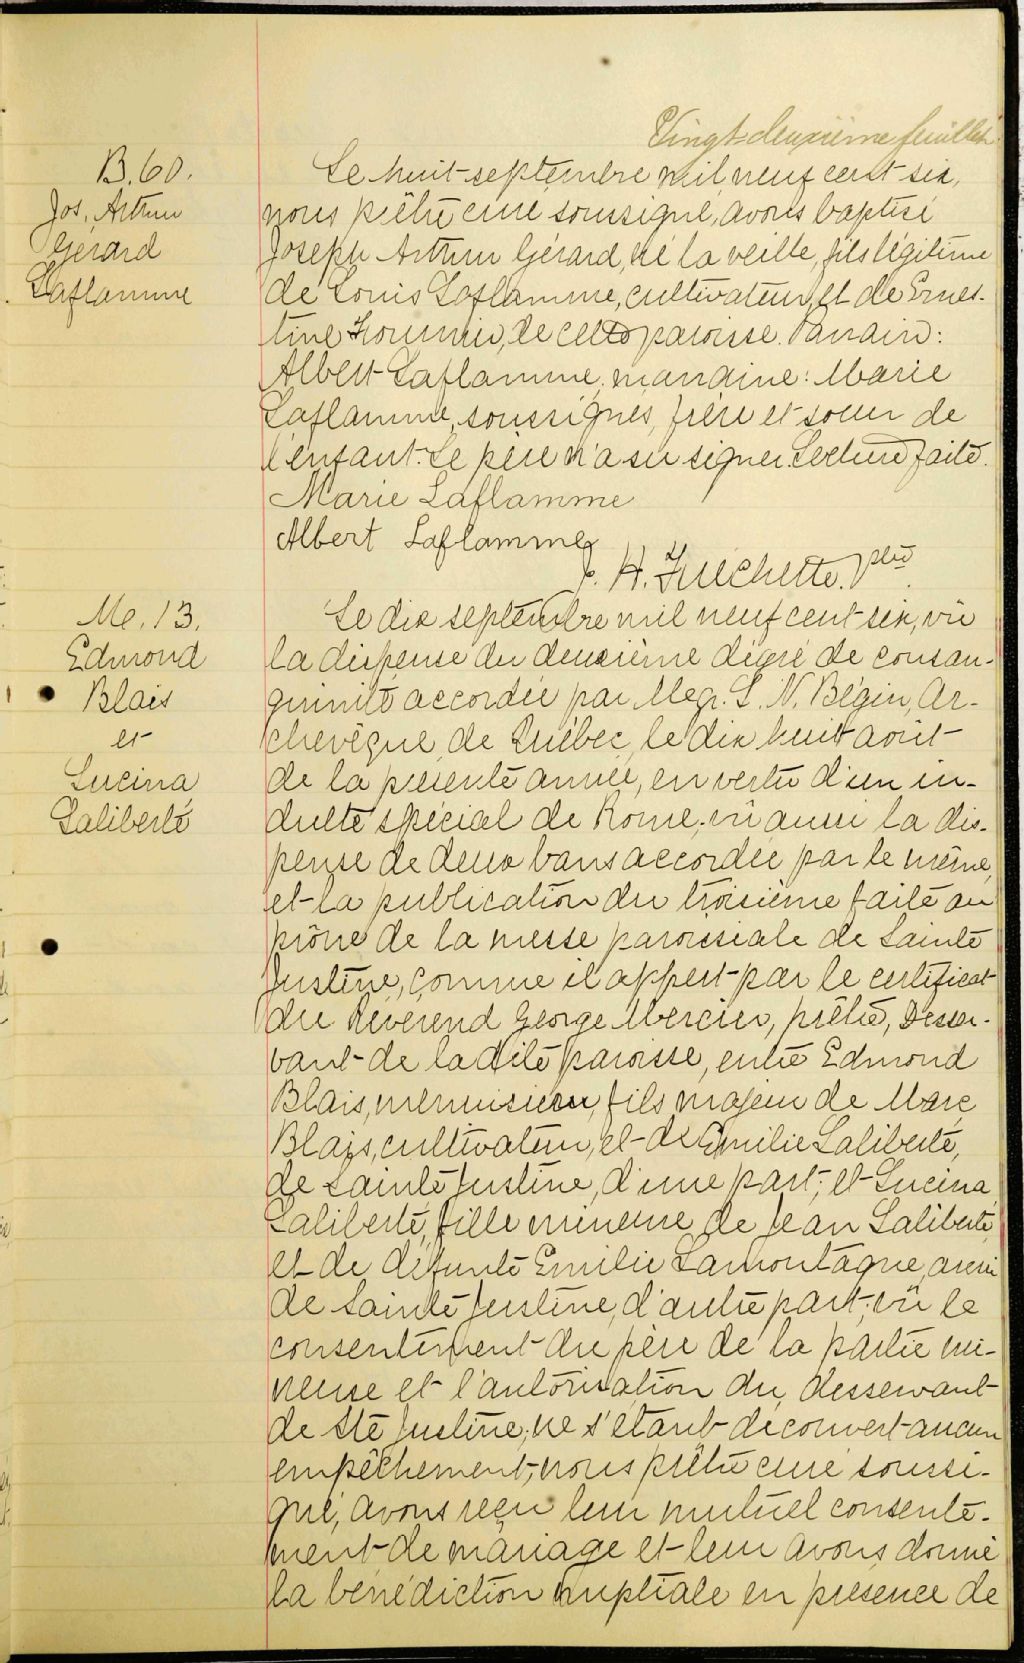 Vingt deuxième feuillet
B. 60.
Jos. Arthur
Gérard
Laflamme
Le huit septembre mil neuf cent six,
nous prêtre curé soussigné, avons baptisé
Joseph Arthur Gérard, né la veille, fils légitime
de Louis Laflamme, cultivateur, et de Ernes-
tine Fournier, de cette paroisse. Parrain:
Albert Laflamme, marraine: Marie
Laflamme, soussignés, frère et soeur de
l'enfant. Le père n'a su signer. Lecture faite.
Marie Laflamme
Albert Laflamme
J. H. Fréchette. Ptre
M. 13.
Edmond
Blais
et
Lucina
Laliberté
Le dix septembre mil neuf cent six, vû
la dispense du deuxième dégré de consan-
guinité accordée par Mgr. L. N. Bégin, Ar-
chevêque de Québec, le dix huit août
de la présente année, en vertu d'un in-
dulte spécial de Rome; vû aussi la dis-
pense de deux bans accordée par le même,
et la publication du troisième faite au
prône de la messe paroissiale de Sainte
Justine, comme il appert par le certificat
du Révérend George Mercier, prêtre, Desser-
vant de la dite paroisse, entre Edmond
Blais, menuisier, fils majeur de Marc
Blais, cultivateur, et de Emilie Laliberté,
de Sainte Justine, d'une part; et Lucina
Laliberté, fille mineure de Jean Laliberté
et de défunte Emilie Lamontagne, aussi
de Sainte Justine, d'autre part; vû le
consentement du père de la partie mi-
neure et l'autorisation du desservant
de Ste Justine; ne s'étant découvert aucun
empêchement; nous prêtre curé soussi-
gné, avons reçu leur mutuel consente-
ment de mariage et leur avons donné
la bénédiction nuptiale en présence de